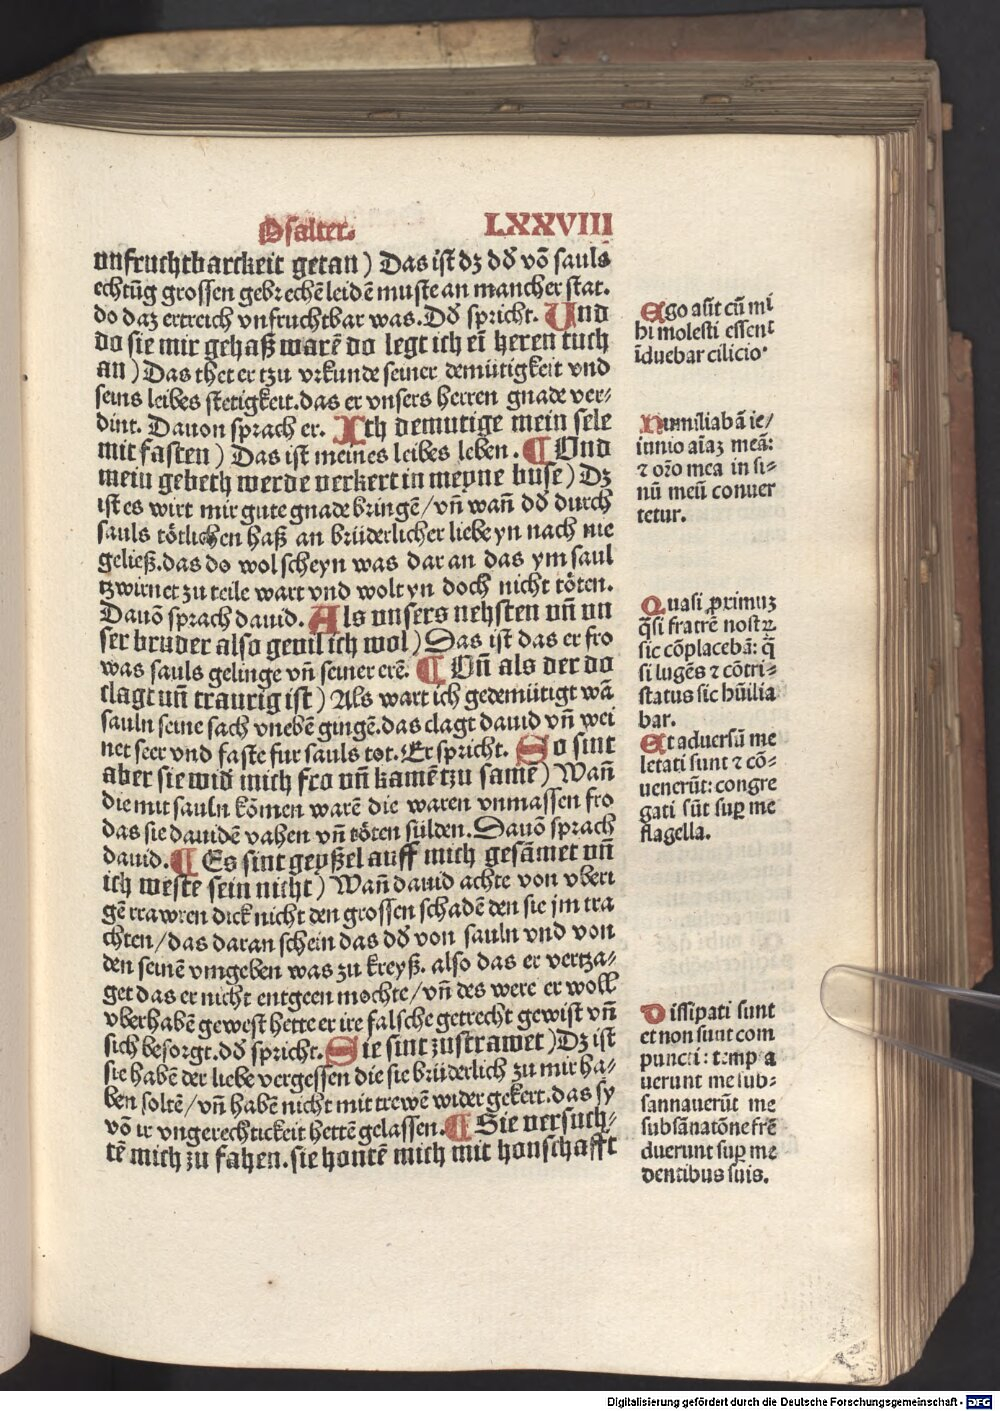 Psalter.
LXXVIII
vnfruchtbarckeit getan) Das ist dz dð võ sauls
echtũg grossen gebrechẽ leidẽ muste an mancher stat.
do daz ertreich vnfruchtbar was. Dð spricht. Und
do sie mir gehaß warẽ do legt ich eĩ heren tuch
an) Das thet er tzu vrkunde seiner demütigkeit vnd
seins leibes stetigkeit. das er vnsers herren gnade ver⸗
dint. Dauon sprach er. Ich demutige mein sele
mit fasten) Das ist meines leibes leben. ¶ Vnd
mein gebeth werde verkert in meyne buse) Dz
ist es wirt mir gute gnade bringẽ/ vñ wañ dð durch
sauls tötlichen haß an brüderlicher liebe yn nach nie
geließ. das do wol scheyn was dar an das ym saul
tzwirnet zu teile wart vnd wolt yn doch nicht töten.
Dauõ sprach dauid. Als vnsers nehsten vñ vn
ser bruder also gevil ich wol) Das ist das er fro
was sauls gelinge vñ seiner erẽ. ¶ Vñ als der do
clagt vñ traurig ist) Als wart ich gedemütigt wã
sauln seine sach vnebẽ gingẽ. das clagt dauid vñ wei
net seer vnd faste fur sauls tot. Er spricht. So sint
aber sie wið mich fro vñ kamẽ tzu samẽ) Wañ
die mit sauln kömen warẽ die waren vnmassen fro
das sie dauidẽ vahen vñ töten sülden. Dauõ sprach
dauid. ¶ Es sint geyßel auff mich gesãmet vñ
ich weste sein nicht) Wañ dauid achte von vberi
gẽ trawren dick nicht den grossen schadẽ den sie jm tra
chten/ das daran schein das dð von sauln vnd von
den seinẽ vmgeben was zu kreyß. also das er vertza⸗
get das er nicht entgeen mochte/ vñ des were er woll
vberhabẽ gewest hette er ire falsche getrecht gewist vñ
sich besorgt. dð spricht. Sie sint zustrawet) Dz ist
sie habẽ der liebe vergessen die sie brüderlich zu mir ha⸗
ben soltẽ/ vñ habẽ nicht mit trewẽ wider gekert. das sy
võ ir vngerechtickeit hettẽ gelassen. ¶ Sie versuch⸗
tẽ mich zu fahen. sie hontẽ mich mit honschafft
Ego aũt cũ mi
hi molesti essent
ĩduebar cilicio.
Humiliabã ie/
iunio aĩaz meã:
⁊ oro mea in si⸗
nũ meũ conuer
tetur.
Quasi ꝓximuz
q̃si fratrẽ nostꝝ
sic cõplacebã: q̃
si lugẽs ⁊ cõtri⸗
status sic hũilia
bar.
Et aduersũ me
letati sunt ⁊ cõ⸗
uenerũt: congre
gati sũt suꝑ me
flagella.
Dissipati sunt
et non sunt com
puncti: tempta
uerunt me sub⸗
sannauerũt me
subsãnatõne frẽ
duerunt suꝑ me
dentibus suis.
Digitalisierung gefördert durch die Deutsche Forschungsgemeinschaft - DFG